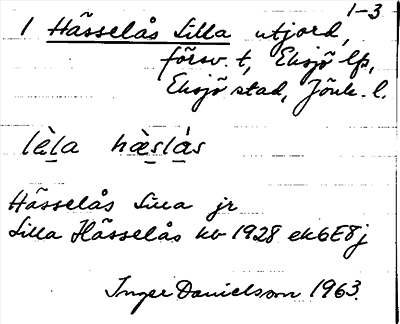 1-3
1 Hässelås Lilla utjord,
försv. t, Eksjö lfs,
Eksjö stad, Jönk. l.
lèla hæ̀slås
Hässelås Lilla jr
Lilla Hässelås hb 1928 ek6E8j
Inger Danielsson 1963.